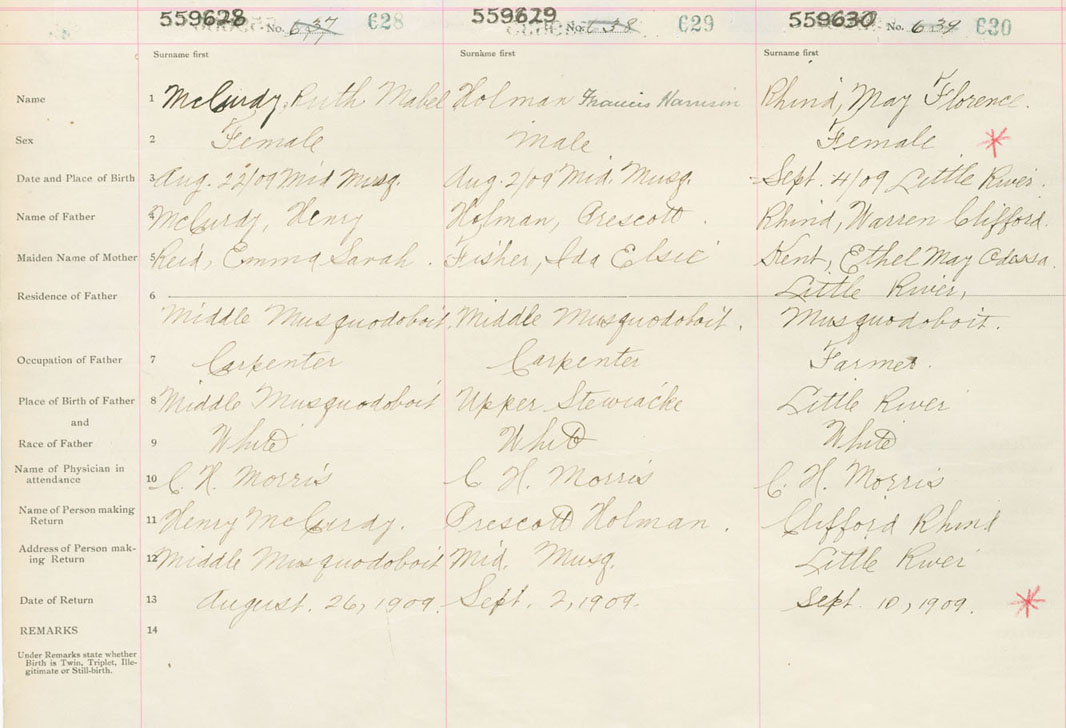 559628 No. 637 628 559629 No. 638 629 559630 No. 639 630
Surname first Surname first Surname first
Name 1 McCurdy, Ruth Mabel Holman Francis Harrison Rhind, May Florence.
Sex 2 Female Male Female
Date and Place of Birth 3 Aug. 22/09 Mid Musq. Aug. 2/09 Mid. Musq. Sept. 4/09 Little River.
Name of Father 4 McCurdy, Henry Holman, Prescott. Rhind, Warren Clifford.
Maiden Name of Mother 5 Reid, Emma Sarah. Fisher, Ida Elsie Kent, Ethel May Odessa.
Residence of Father 6 Little River,
Middle Musquodoboit, Middle Musquodoboit. Musquodoboit.
Occupation of Father 7 Carpenter Carpenter Farmer.
Place of Birth of Father 8 Middle Musquodoboit Upper Stewiacke Little River
and
Race of Father 9 White White White
Name of Physician in
attendance 10 C. H. Morris C H. Morris C. H. Morris
Name of Person making
Return 11 Henry McCurdy. Prescott Holman. Clifford Rhind
Address of Person mak-
ing Return 12 Middle Musquodoboit Mid. Musq. Little River
Date of Return 13 August. 26, 1909. Sept. 2, 1909. Sept. 10, 1909.
REMARKS 14
Under Remarks state whether
Birth is Twin, Triplet, Ille-
gitimate or Still-birth.